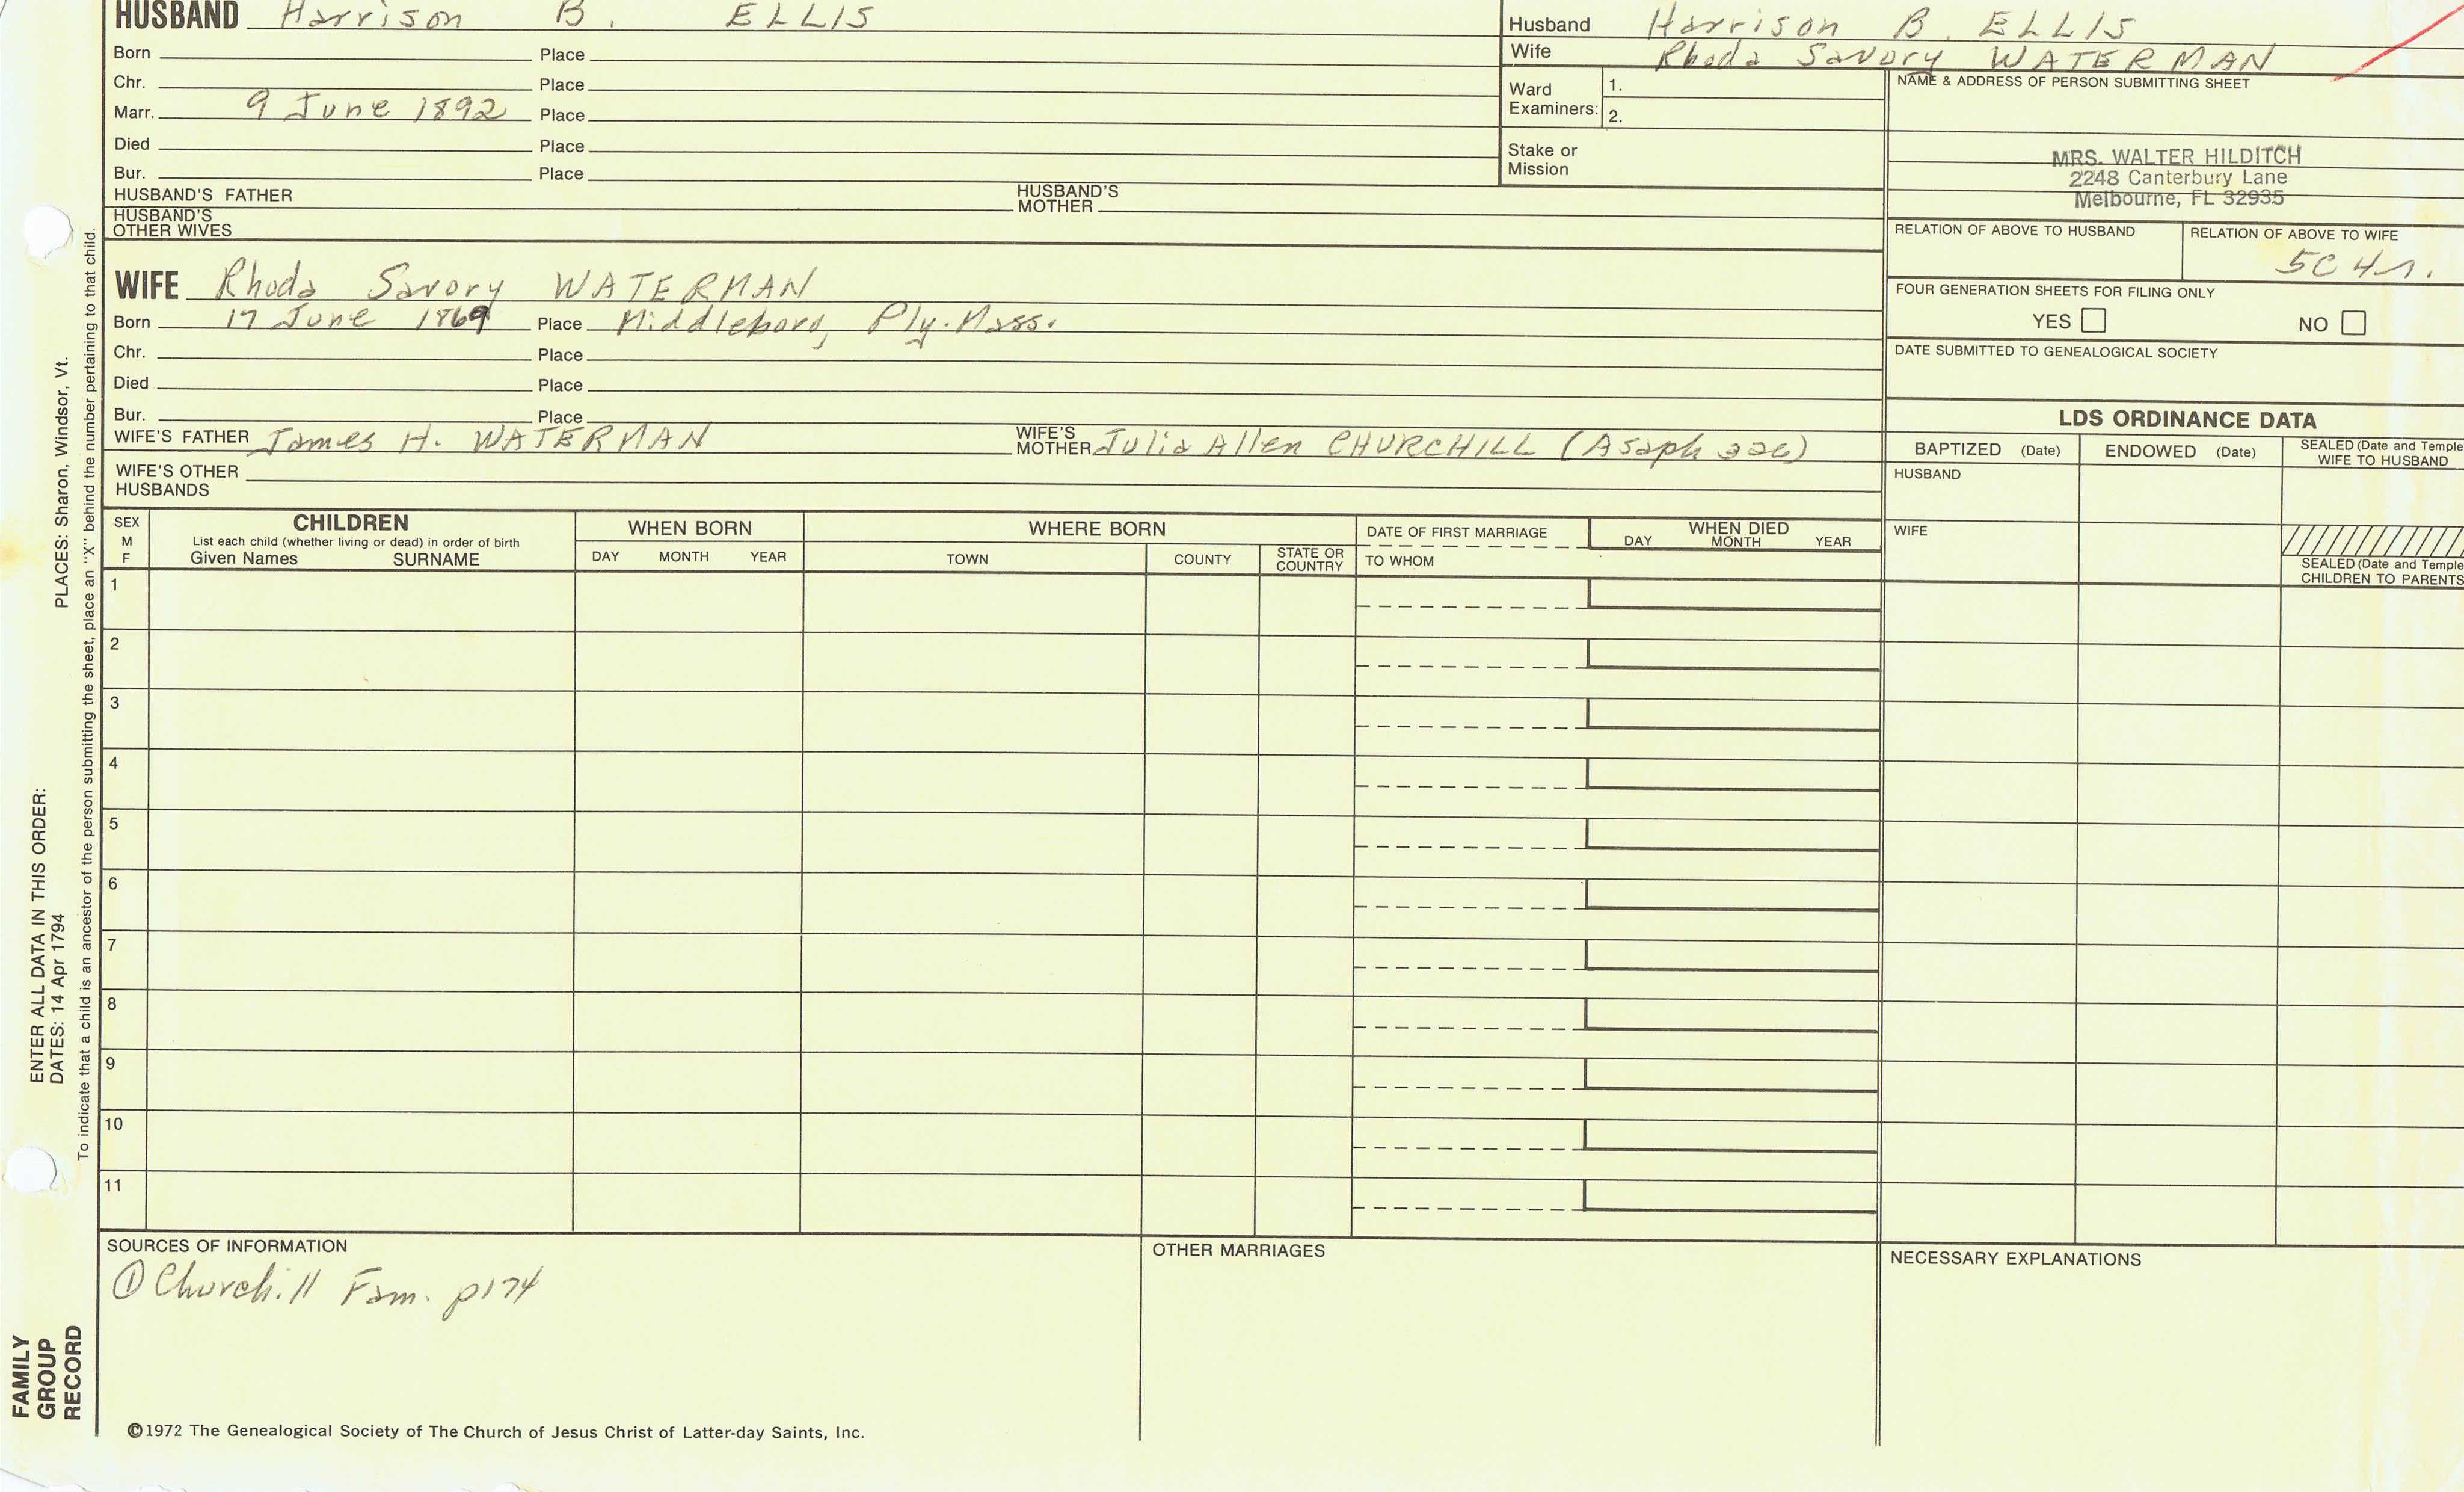 HUSBAND Harrison B. ELLIS
Born Place
Chr. Place
Marr. 9 June 1892 Place
Died Place
Bur. Place
HUSBAND'S FATHER HUSBAND'S MOTHER
HUSBAND'S OTHER WIVES
Husband Harrison B. ELLIS
Wife Rhoda Savory WATERMAN
Ward Examiners: 1.
2.
Stake or Mission
NAME & ADDRESS OF PERSON SUBMITTING SHEET
MRS. WALTER HILDITCH
2248 Canterbury Lane
Melbourne, FL 32935
RELATION OF ABOVE TO HUSBAND
RELATION OF ABOVE TO WIFE
5C 4r.
FOUR GENERATION SHEETS FOR FILING ONLY
YES NO
DATE SUBMITTED TO GENEALOGICAL SOCIETY
WIFE Rhoda Savory WATERMAN
Born 17 June 1869 Place Middleboro, Ply. Mass.
Chr. Place
Died Place
Bur. Place
WIFE'S FATHER James H. WATERMAN WIFE'S MOTHER Julia Allen CHURCHILL (Asaph 326)
WIFE'S OTHER HUSBANDS
LDS ORDINANCE DATA
BAPTIZED (Date) ENDOWED (Date) SEALED (Date and Temple
WIFE TO HUSBAND
HUSBAND
WIFE
SEALED (Date and Temple
CHILDREN TO PARENTS
SEX
M
F
CHILDREN
List each child (whether living or dead) in order of birth
Given Names SURNAME
WHEN BORN
DAY MONTH YEAR
WHERE BORN
TOWN COUNTY STATE OR COUNTRY
DATE OF FIRST MARRIAGE
TO WHOM
WHEN DIED
DAY MONTH YEAR
1
2
3
4
5
6
7
8
9
10
11
SOURCES OF INFORMATION
① Churchill Fam. p174
OTHER MARRIAGES
NECESSARY EXPLANATIONS
©1972 The Genealogical Society of The Church of Jesus Christ of Latter-day Saints, Inc.
FAMILY
GROUP
RECORD
ENTER ALL DATA IN THIS ORDER:
DATES: 14 Apr 1794 PLACES: Sharon, Windsor, Vt.
To indicate that a child is an ancestor of the person submitting the sheet, place an "X" behind the number pertaining to that child.